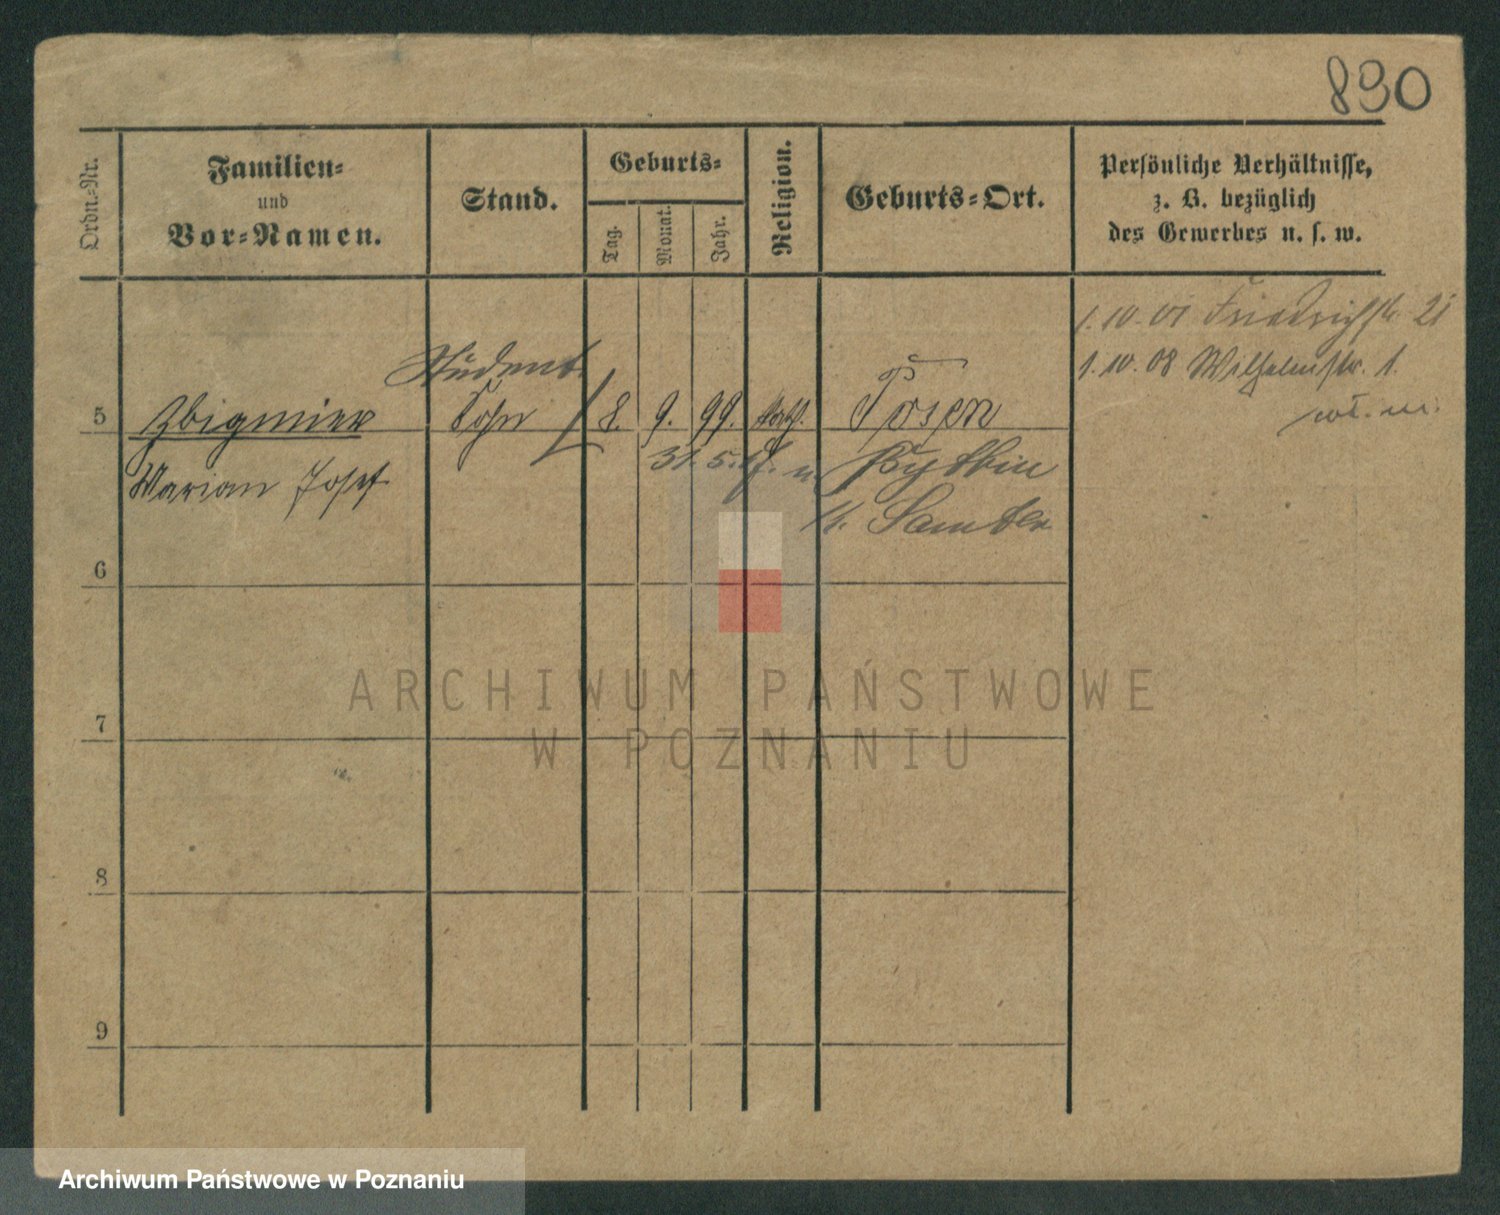 890
Ordn.-Nr.
Familien-
und
Vor-Namen.
Stand.
Geburts-
Tag.
Monat.
Jahr.
Religion.
Geburts-Ort.
Persönliche Verhältnisse,
z. B. bezüglich
des Gewerbes u. s. w.
1.10.01 Friedrichstr. 21
1.10.08 Wilhelmstr. 1.
Student
5 Zbigniew Sohn 8. 9. 99. kath. Posen
Marian Josef
31. 5. 17. n.
K. Samter
6
7
8
9
ARCHIWUM PAŃSTWOWE
W POZNANIU
Archiwum Państwowe w Poznaniu